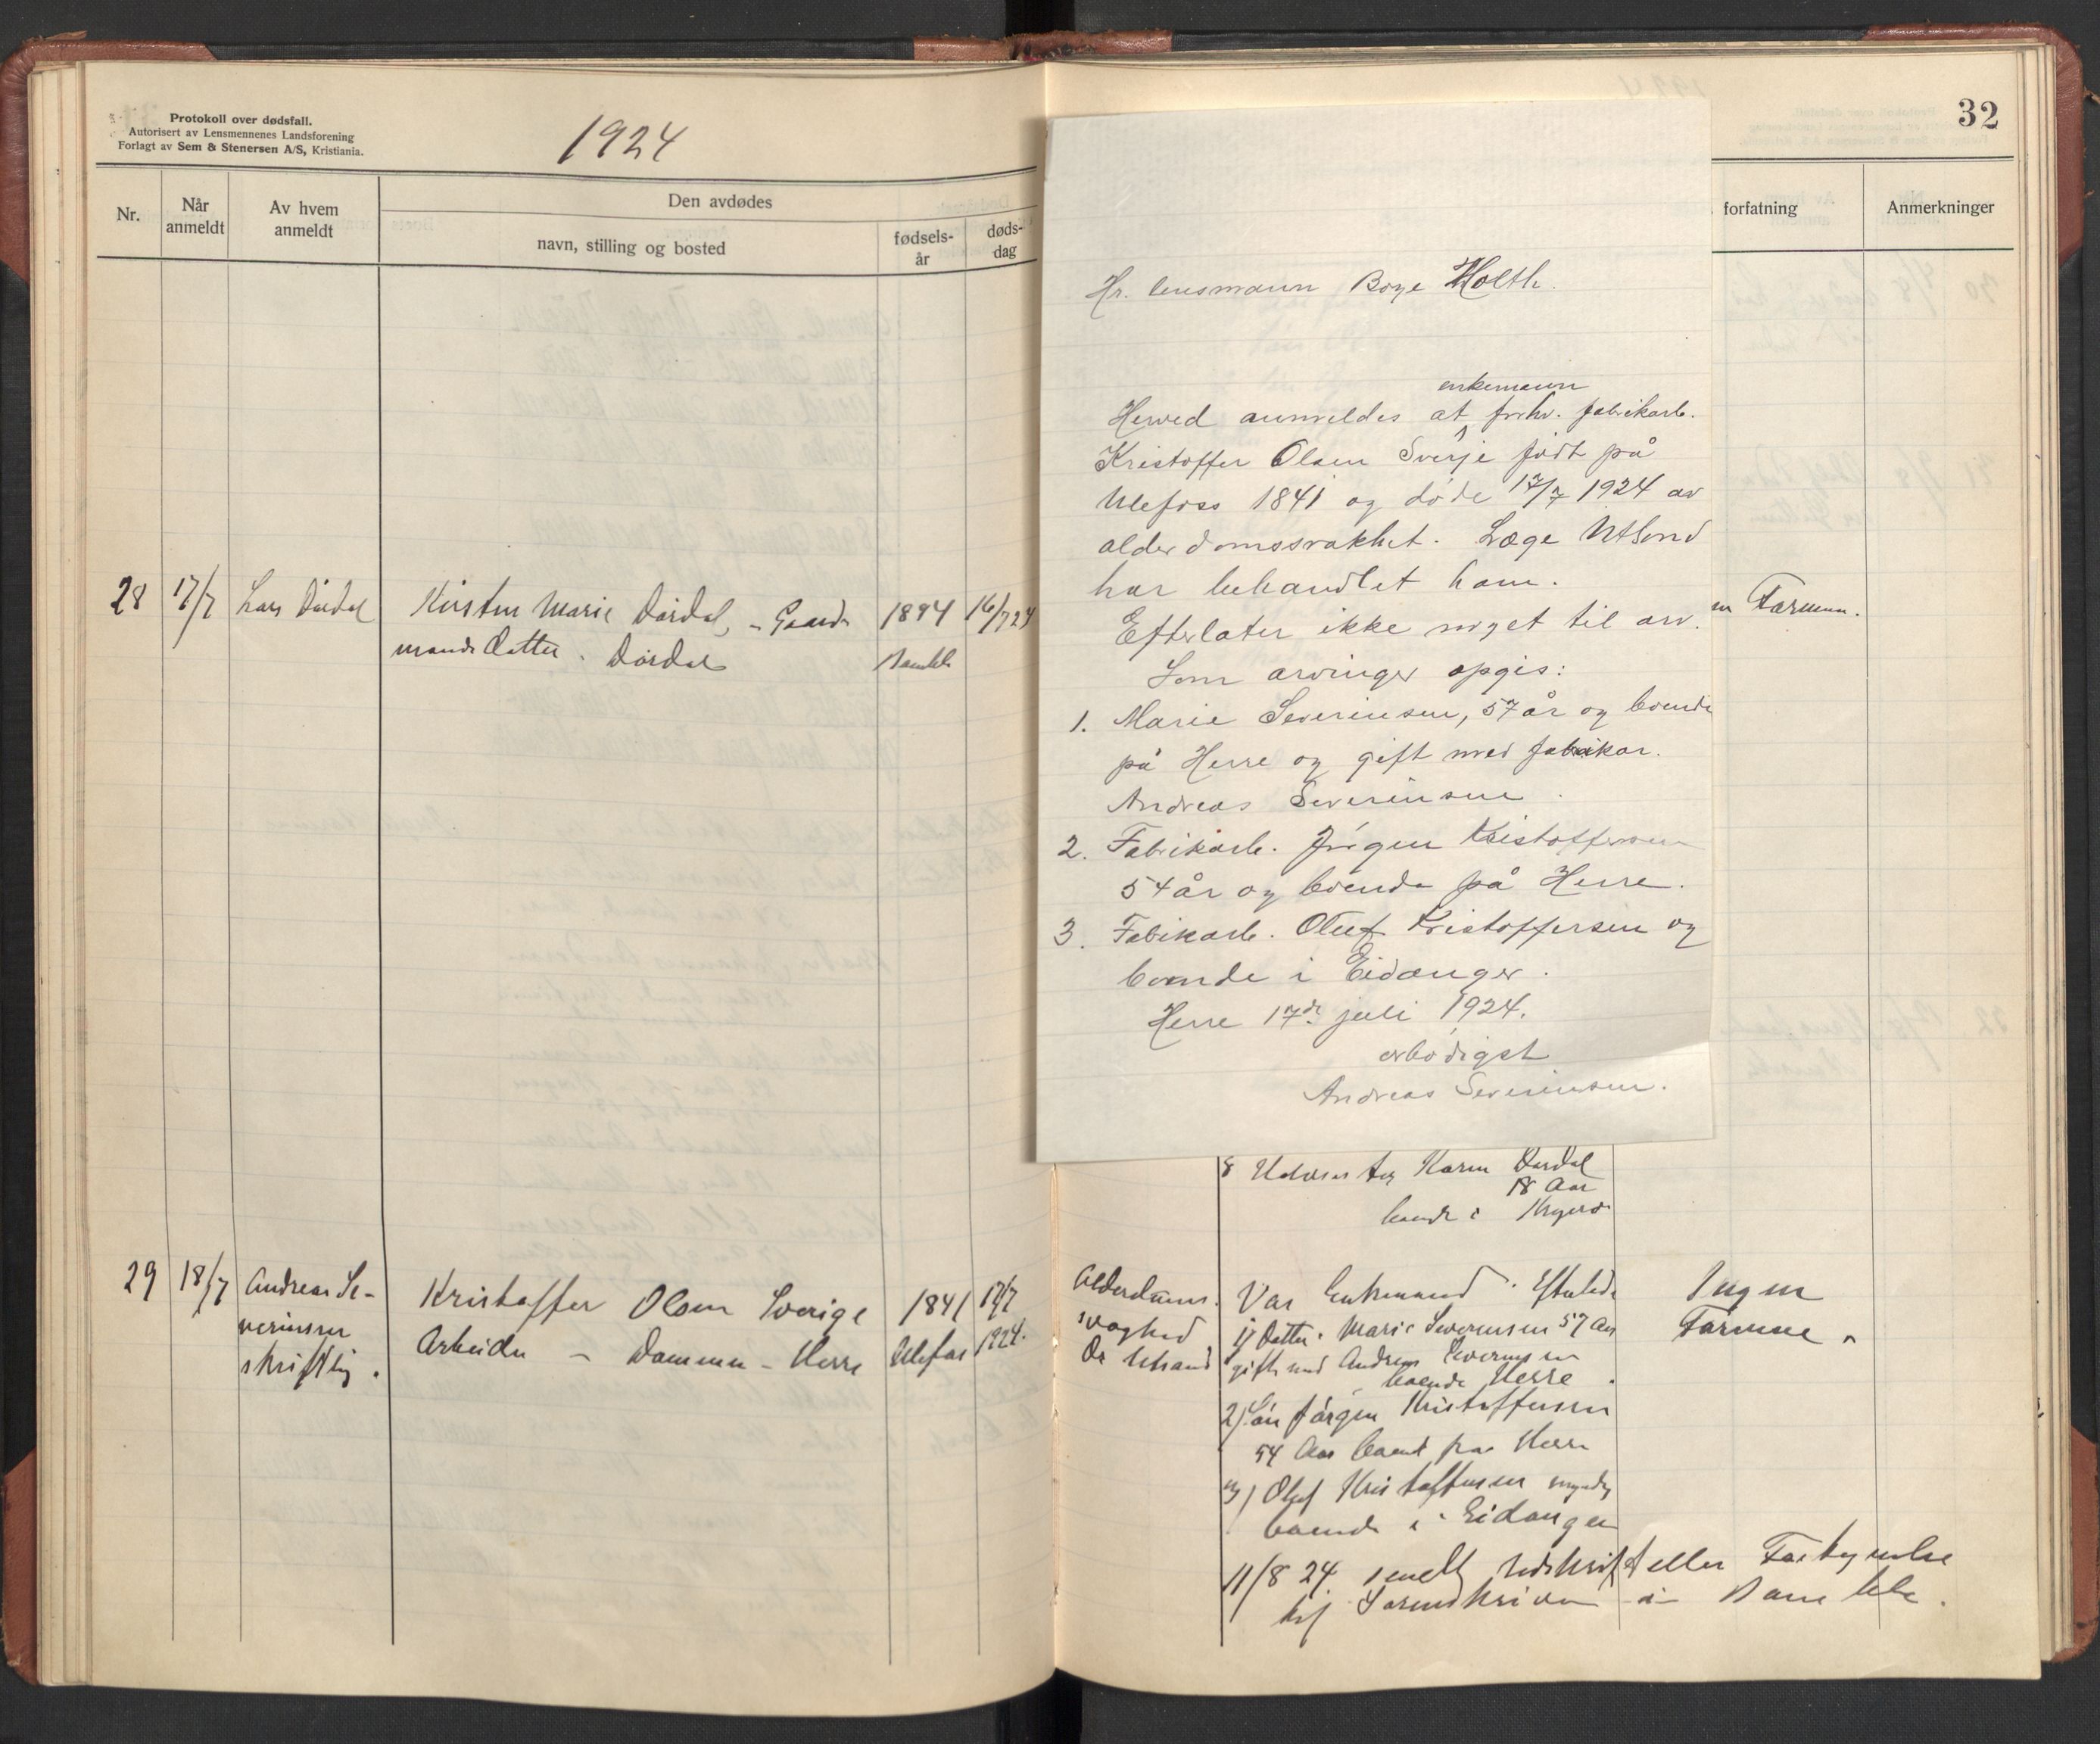 Protokoll over dødsfall.
Autorisert av Lensmennenes Landsforening
Forlagt av Sem & Stenersen A/S, Kristiania.
1924
Nr.
Når anmeldt
Av hvem anmeldt
Den avdødes
navn, stilling og bosted
fødsels-år
døds-dag
28 17/7 Lars Dørdal Kirsten Marie Dørdal, - Gaard- 1894 16/7 24
mands Datter. Dørdal Bamble
29 18/7 Andreas Se- Kristoffer Olsen Sverige 1841 17/7
verinsen Arbeider - Dammen - Herre Ulefos 1924.
skriftlig.
32
forfatning
Anmerkninger
Hr. lensmann Boye Holth.
enkemann
Herved anmeldes at forhv. fabrikarb.
Kristoffer Olsen Sverje født på
Ulefoss 1841 og døde 17/7 1924 av
alderdomssvakhet. Læge Utland
har behandlet ham.
Efterlater ikke noget til arv.
Som arvinger opgis:
1. Marie Severinsen, 57 år og boende
på Herre og gift med fabrikar.
Andreas Severinsen.
2. Fabrikarb. Jørgen Kristoffersen
54 år og boende på Herre.
3. Fabikarb. Oluf Kristoffersen og
boende i Eidanger.
Herre 17de juli 1924.
ærbødigst
Andreas Severinsen.
Formue.
8 Karen Dørdal
18 Aar
boende i Kragerø
Alderdoms.
svaghed
Dr Utland
Var Enkemand. Efterlod
1) Datter. Marie Severinsen 57 Aar
gift med Andreas Severinsen
boende Herre.
2) Søn Jørgen Kristoffersen
54 Aar boend paa Herre
3) Oluf Kristoffersen myndig
boende i Eidanger
Ingen
Formue.
11/8 24 sendt
Sorenskriveren i Bamble.